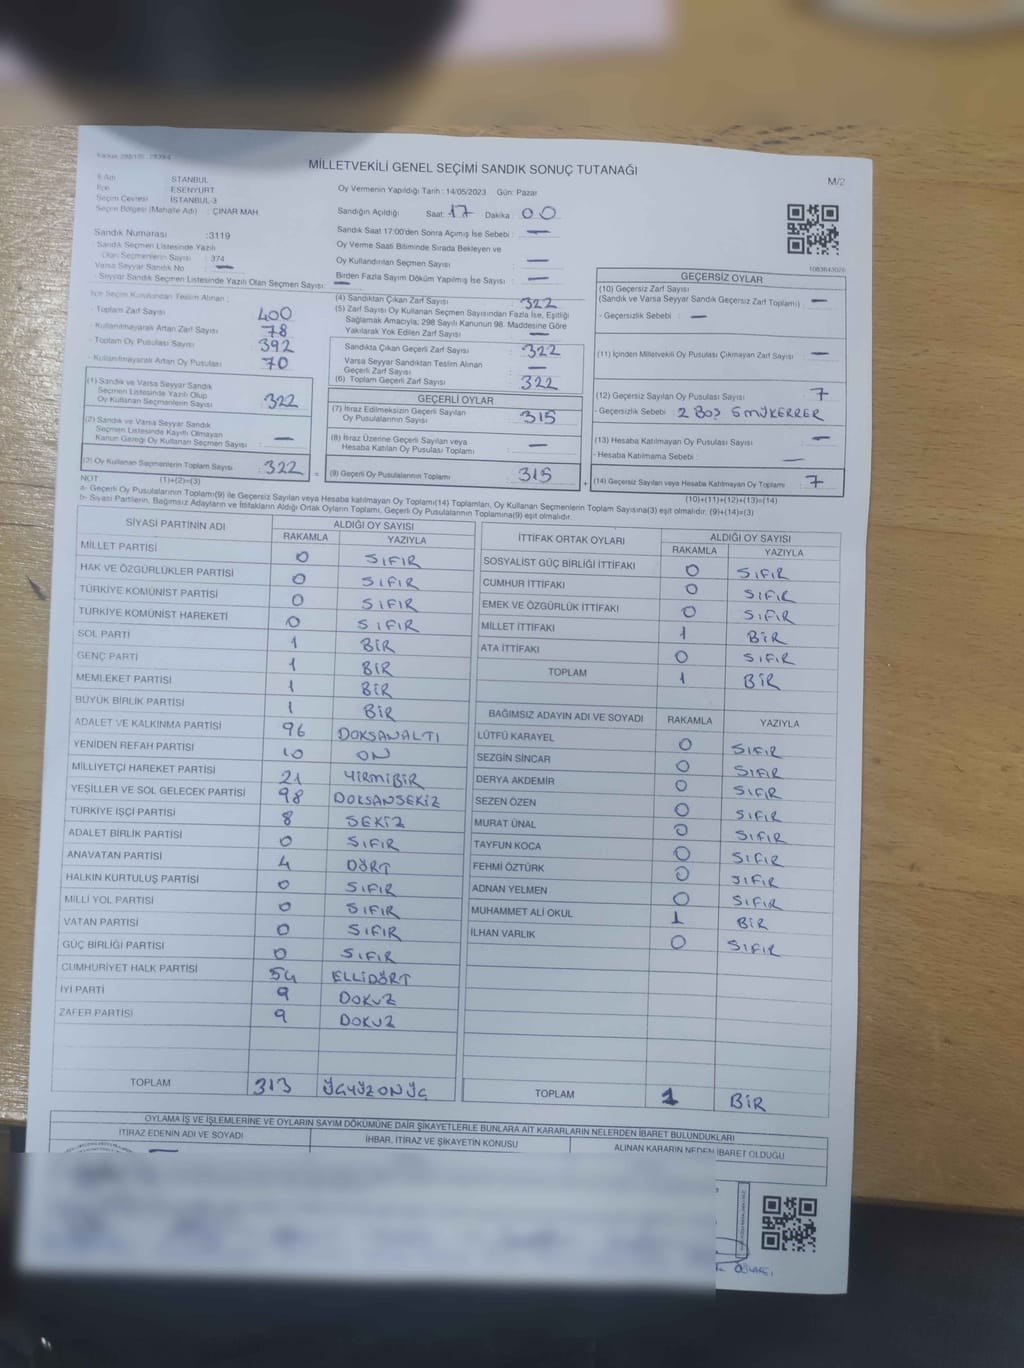 MİLLETVEKİLİ GENEL SEÇİMİ SANDIK SONUÇ TUTANAĞI
M/2
İl Adı : İSTANBUL
İlçe : ESENYURT
Seçim Çevresi : İSTANBUL-3
Seçim Bölgesi (Mahalle Adı) : ÇINAR MAH.
Oy Vermenin Yapıldığı Tarih : 14/05/2023 Gün: Pazar
Sandığın Açıldığı Saat: 17 Dakika : 00
Sandık Saat 17:00'den Sonra Açımış İse Sebebi : —
Oy Verme Saati Bitiminde Sırada Bekleyen ve
Oy Kullandırılan Seçmen Sayısı : —
Birden Fazla Sayım Döküm Yapılmış İse Sayısı : —
Sandık Numarası :3119
- Sandık Seçmen Listesinde Yazılı
Olan Seçmenlerin Sayısı : 374
Varsa Seyyar Sandık No : —
- Seyyar Sandık Seçmen Listesinde Yazılı Olan Seçmen Sayısı: —
İlçe Seçim Kurulundan Teslim Alınan :
- Toplam Zarf Sayısı : 400
- Kullanılmayarak Artan Zarf Sayısı : 78
- Toplam Oy Pusulası Sayısı : 392
- Kullanılmayarak Artan Oy Pusulası : 70
(1) Sandık ve Varsa Seyyar Sandık
Seçmen Listesinde Yazılı Olup
Oy Kullanan Seçmenlerin Sayısı : 322
(2) Sandık ve Varsa Seyyar Sandık
Seçmen Listesinde Kayıtlı Olmayan
Kanun Gereği Oy Kullanan Seçmen Sayısı : —
(3) Oy Kullanan Seçmenlerin Toplam Sayısı : 322
(1)+(2)=(3)
(4) Sandıktan Çıkan Zarf Sayısı : 322
(5) Zarf Sayısı Oy Kullanan Seçmen Sayısından Fazla İse, Eşitliği
Sağlamak Amacıyla; 298 Sayılı Kanunun 98. Maddesine Göre
Yakılarak Yok Edilen Zarf Sayısı : —
Sandıkta Çıkan Geçerli Zarf Sayısı : 322
Varsa Seyyar Sandıktan Teslim Alınan
Geçerli Zarf Sayısı : —
(6) Toplam Geçerli Zarf Sayısı : 322
GEÇERLİ OYLAR
(7) İtiraz Edilmeksizin Geçerli Sayılan
Oy Pusulalarının Sayısı : 315
(8) İtiraz Üzerine Geçerli Sayılan veya
Hesaba Katılan Oy Pusulası Toplamı : —
= (9) Geçerli Oy Pusulalarının Toplamı : 315
GEÇERSİZ OYLAR
1083643026
(10) Geçersiz Zarf Sayısı
(Sandık ve Varsa Seyyar Sandık Geçersiz Zarf Toplamı) : —
- Geçersizlik Sebebi : —
(11) İçinden Milletvekili Oy Pusulası Çıkmayan Zarf Sayısı : —
(12) Geçersiz Sayılan Oy Pusulası Sayısı : 7
- Geçersizlik Sebebi : 2 BOŞ 5 MÜKERRER
(13) Hesaba Katılmayan Oy Pusulası Sayısı : —
- Hesaba Katılmama Sebebi : —
+ (14) Geçersiz Sayılan veya Hesaba Katılmayan Oy Toplamı : 7
(10)+(11)+(12)+(13)=(14)
NOT:
a- Geçerli Oy Pusulalarının Toplamı(9) ile Geçersiz Sayılan veya Hesaba katılmayan Oy Toplamı(14) Toplamları, Oy Kullanan Seçmenlerin Toplam Sayısına(3) eşit olmalıdır. (9)+(14)=(3)
b- Siyasi Partilerin, Bağımsız Adayların ve İttifakların Aldığı Ortak Oyların Toplamı, Geçerli Oy Pusulalarının Toplamına(9) eşit olmalıdır.
SİYASİ PARTİNİN ADI ALDIĞI OY SAYISI
RAKAMLA YAZIYLA
MİLLET PARTİSİ 0 SIFIR
HAK VE ÖZGÜRLÜKLER PARTİSİ 0 SIFIR
TÜRKİYE KOMÜNİST PARTİSİ 0 SIFIR
TÜRKİYE KOMÜNİST HAREKETİ 0 SIFIR
SOL PARTİ 1 BİR
GENÇ PARTİ 1 BİR
MEMLEKET PARTİSİ 1 BİR
BÜYÜK BİRLİK PARTİSİ 1 BİR
ADALET VE KALKINMA PARTİSİ 96 DOKSANALTI
YENİDEN REFAH PARTİSİ 10 ON
MİLLİYETÇİ HAREKET PARTİSİ 21 YİRMİBİR
YEŞİLLER VE SOL GELECEK PARTİSİ 98 DOKSANSEKİZ
TÜRKİYE İŞÇİ PARTİSİ 8 SEKİZ
ADALET BİRLİK PARTİSİ 0 SIFIR
ANAVATAN PARTİSİ 4 DÖRT
HALKIN KURTULUŞ PARTİSİ 0 SIFIR
MİLLİ YOL PARTİSİ 0 SIFIR
VATAN PARTİSİ 0 SIFIR
GÜÇ BİRLİĞİ PARTİSİ 0 SIFIR
CUMHURİYET HALK PARTİSİ 54 ELLİDÖRT
İYİ PARTİ 9 DOKUZ
ZAFER PARTİSİ 9 DOKUZ
TOPLAM 313 ÜÇYÜZONÜÇ
İTTİFAK ORTAK OYLARI ALDIĞI OY SAYISI
RAKAMLA YAZIYLA
SOSYALİST GÜÇ BİRLİĞİ İTTİFAKI 0 SIFIR
CUMHUR İTTİFAKI 0 SIFIR
EMEK VE ÖZGÜRLÜK İTTİFAKI 0 SIFIR
MİLLET İTTİFAKI 1 BİR
ATA İTTİFAKI 0 SIFIR
TOPLAM 1 BİR
BAĞIMSIZ ADAYIN ADI VE SOYADI RAKAMLA YAZIYLA
LÜTFÜ KARAYEL 0 SIFIR
SEZGİN SİNCAR 0 SIFIR
DERYA AKDEMİR 0 SIFIR
SEZEN ÖZEN 0 SIFIR
MURAT ÜNAL 0 SIFIR
TAYFUN KOCA 0 SIFIR
FEHMİ ÖZTÜRK 0 SIFIR
ADNAN YELMEN 0 SIFIR
MUHAMMET ALİ OKUL 1 BİR
İLHAN VARLIK 0 SIFIR
TOPLAM 1 BİR
OYLAMA İŞ VE İŞLEMLERİNE VE OYLARIN SAYIM DÖKÜMÜNE DAİR ŞİKAYETLERLE BUNLARA AİT KARARLARIN NELERDEN İBARET BULUNDUKLARI
İTİRAZ EDENİN ADI VE SOYADI İHBAR, İTİRAZ VE ŞİKAYETİN KONUSU ALINAN KARARIN NEDEN İBARET OLDUĞU